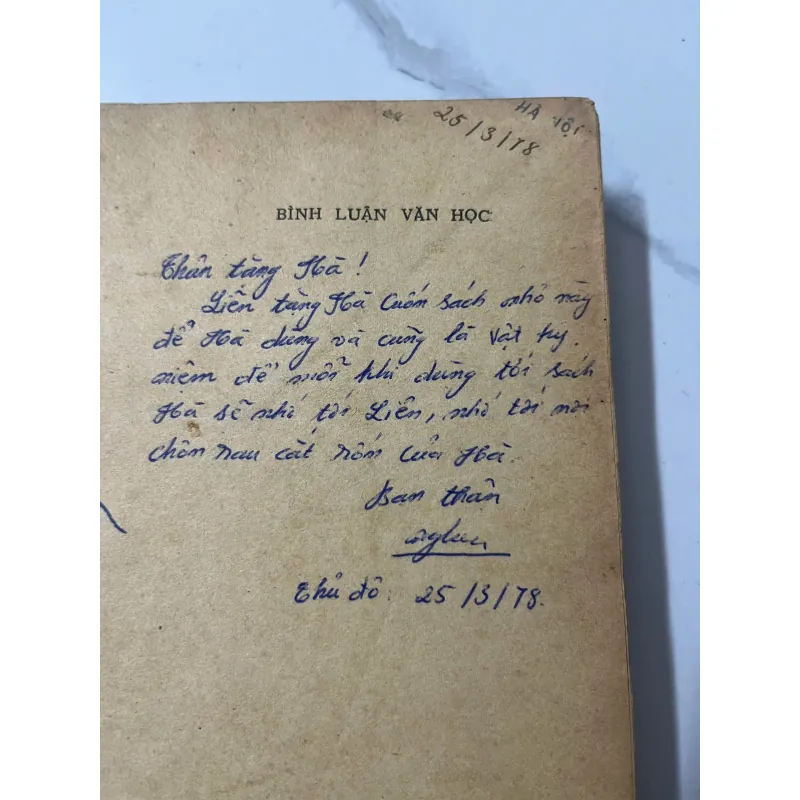 HÀ NỘI
25/3/78
BÌNH LUẬN VĂN HỌC
Thân tặng Hà!
Liên tặng Hà cuốn sách nhỏ này
để Hà dùng và cũng là vật kỷ
niệm để mỗi khi dùng tới sách
Hà sẽ nhớ tới Liên, nhớ tới nơi
chôn rau cắt rốn của Hà.
Bạn thân
Thủ đô: 25/3/78.